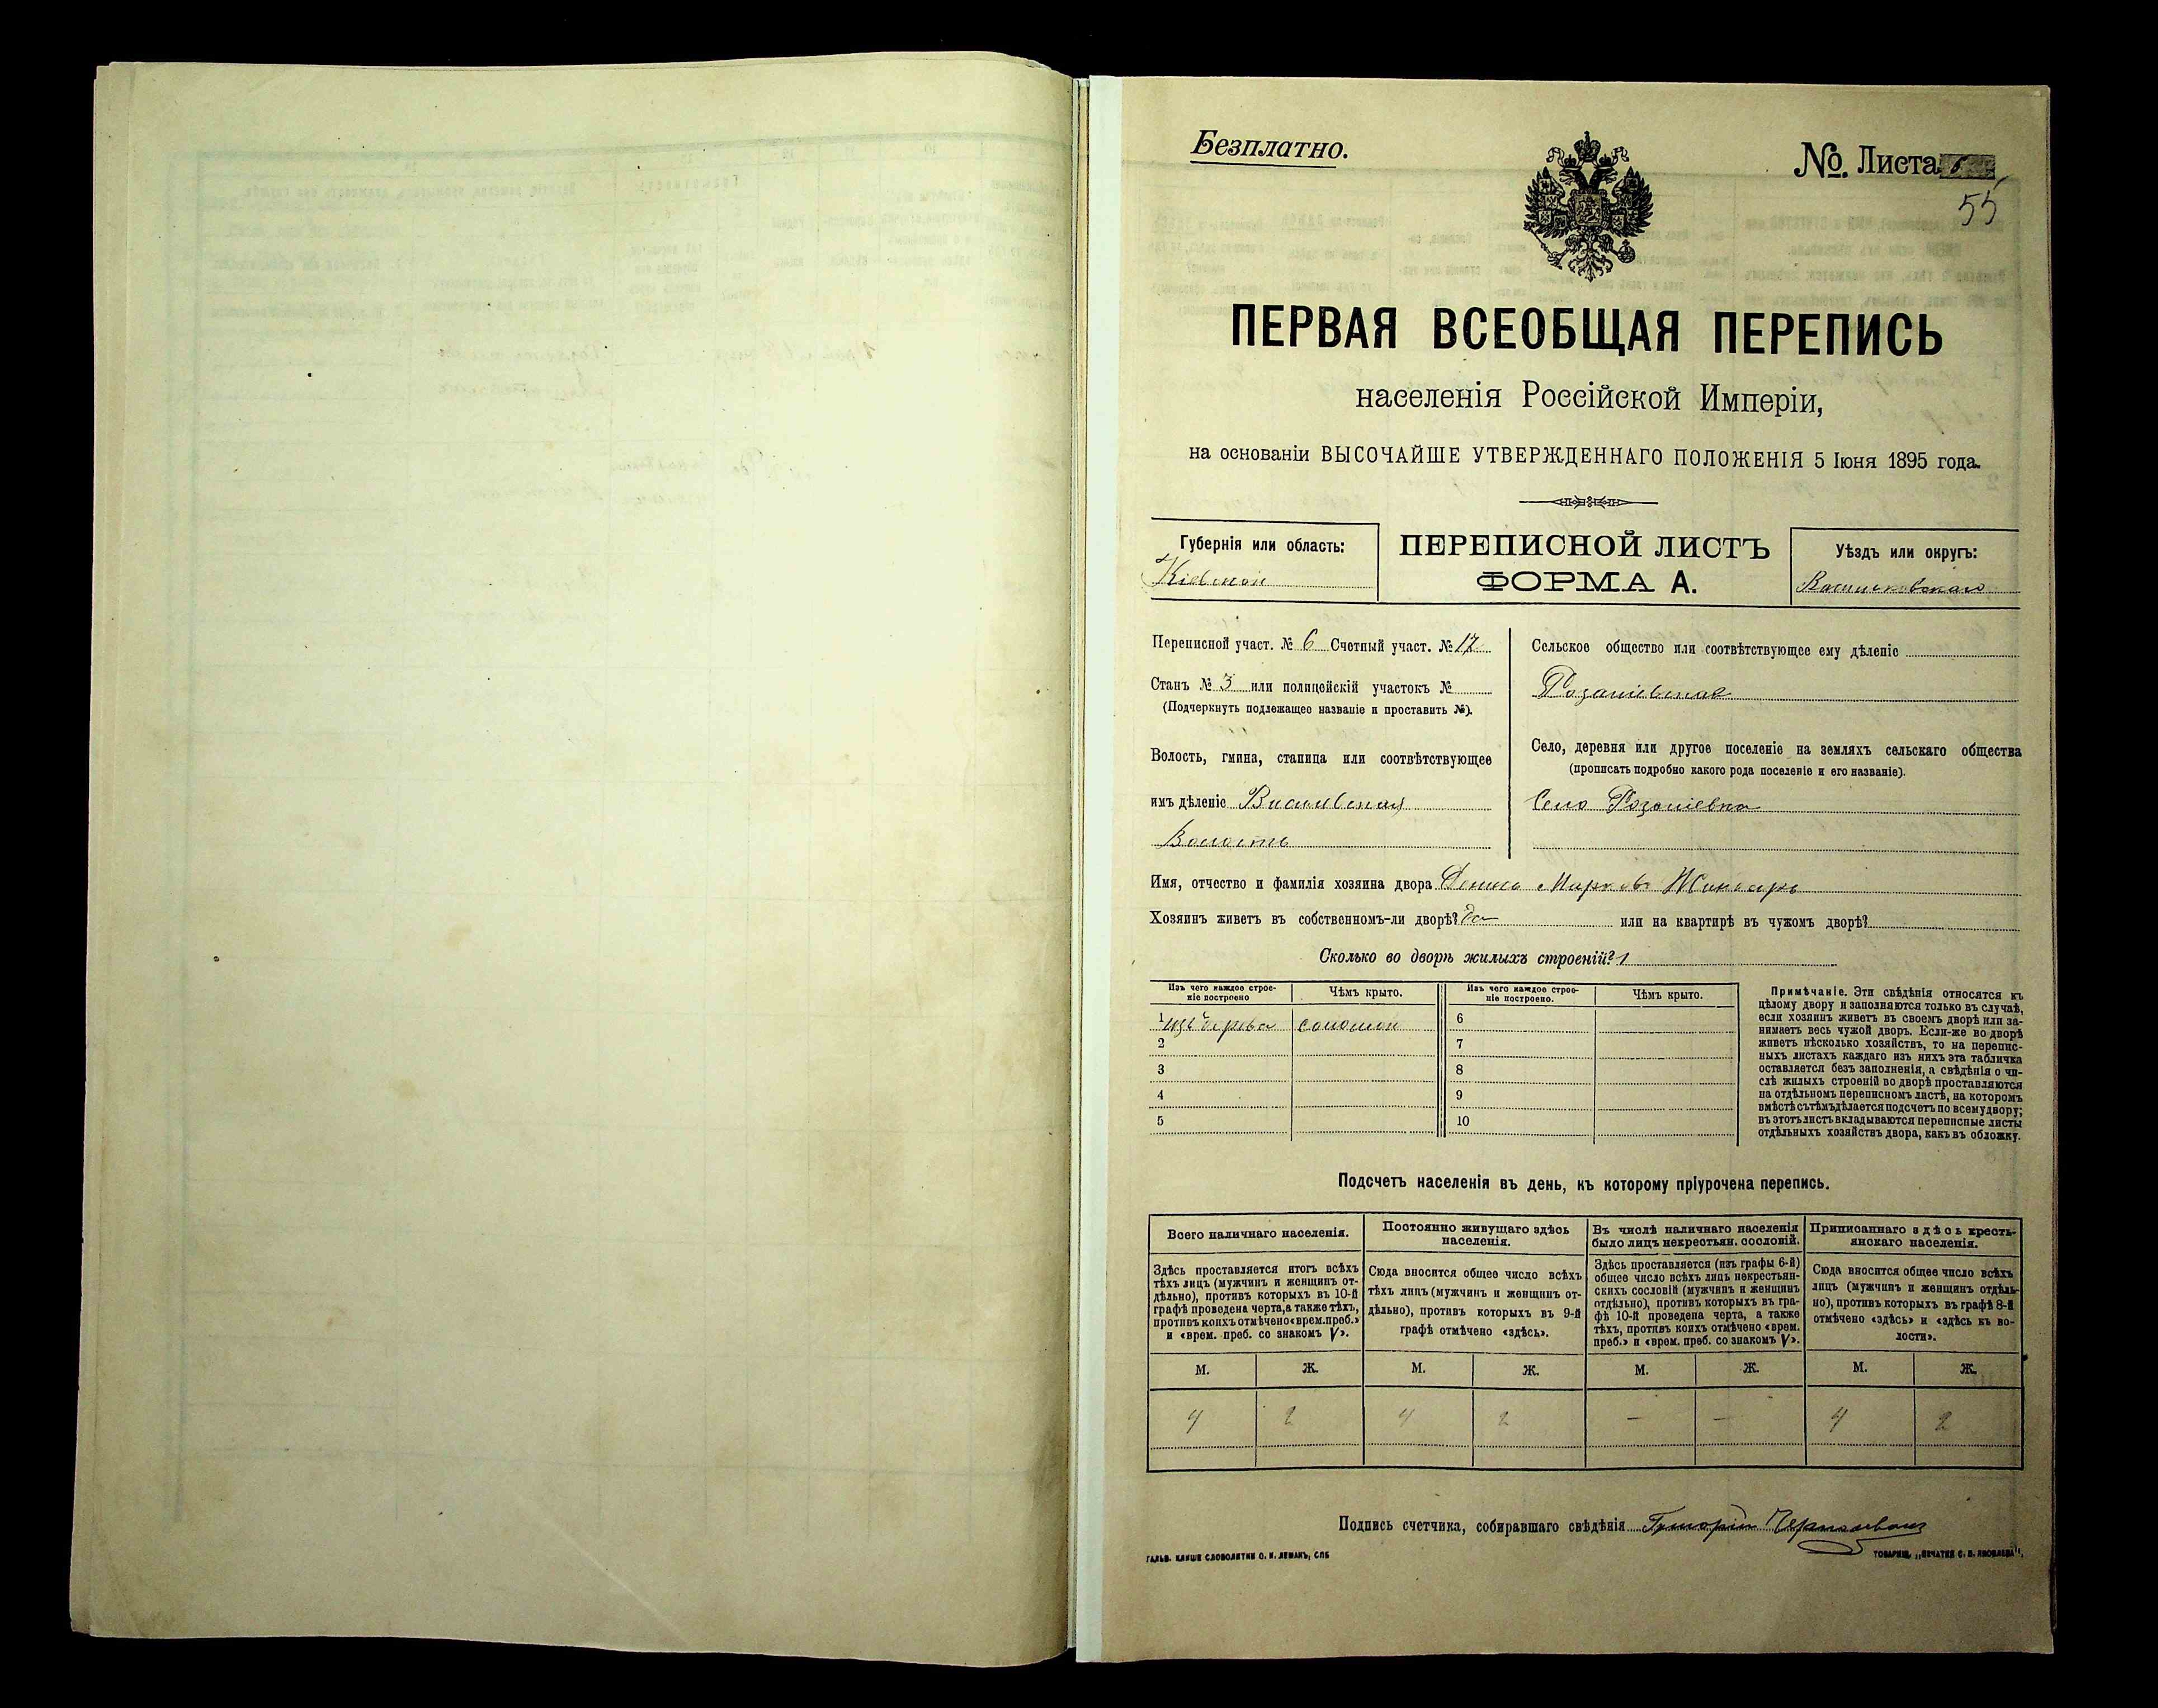 Безплатно.
№. Листа
55
ПЕРВАЯ ВСЕОБЩАЯ ПЕРЕПИСЬ
населенія Россійской Имперіи,
на основаніи ВЫСОЧАЙШЕ УТВЕРЖДЕННАГО ПОЛОЖЕНІЯ 5 Іюня 1895 года.
Губернія или область:
Кіевской
ПЕРЕПИСНОЙ ЛИСТЪ
ФОРМА А.
Уѣздъ или округъ:
Переписной участ. № 6 Счетный участ. № 17
Станъ № 3 или полицейскій участокъ №
(Подчеркнуть подлежащее названіе и проставить №).
Волость, гмина, станица или соотвѣтствующее
имъ дѣленіе
Волость
Сельское общество или соотвѣтствующее ему дѣленіе
Село, деревня или другое поселеніе на земляхъ сельскаго общества
(прописать подробно какого рода поселеніе и его названіе).
Село
Имя, отчество и фамилія хозяина двора
Хозяинъ живетъ въ собственномъ-ли дворѣ? да или на квартирѣ въ чужомъ дворѣ?
Сколько во дворѣ жилыхъ строеній? 1
Изъ чего каждое строе-
ніе построено
Чѣмъ крыто.
Изъ чего каждое строе-
ніе построено.
Чѣмъ крыто.
1 изъ дерева соломой
2
3
4
5
6
7
8
9
10
Примѣчаніе. Эти свѣдѣнія относятся къ
цѣлому двору и заполняются только въ случаѣ,
если хозяинъ живетъ въ своемъ дворѣ или за-
нимаетъ весь чужой дворъ. Если-же во дворѣ
живетъ нѣсколько хозяйствъ, то на перепис-
ныхъ листахъ каждаго изъ нихъ эта табличка
оставляется безъ заполненія, а свѣдѣнія о чи-
слѣ жилыхъ строеній во дворѣ проставляются
на отдѣльномъ переписномъ листѣ, на которомъ
вмѣстѣ съ тѣмъ дѣлается подсчетъ по всему двору;
въ этотъ листъ вкладываются переписные листы
отдѣльныхъ хозяйствъ двора, какъ въ обложку.
Подсчетъ населенія въ день, къ которому пріурочена перепись.
Всего наличнаго населенія.
Здѣсь проставляется итогъ всѣхъ
тѣхъ лицъ (мужчинъ и женщинъ от-
дѣльно), противъ которыхъ въ 10-й
графѣ проведена черта, а также тѣхъ,
противъ коихъ отмѣчено «врем. преб.»
и «врем. преб. со знакомъ V».
Постоянно живущаго здѣсь
населенія.
Сюда вносится общее число всѣхъ
тѣхъ лицъ (мужчинъ и женщинъ от-
дѣльно), противъ которыхъ въ 9-й
графѣ отмѣчено «здѣсь».
Въ числѣ наличнаго населенія
было лицъ некрестьян. сословій.
Здѣсь проставляется (изъ графы 6-й)
общее число всѣхъ лицъ некрестьян-
скихъ сословій (мужчинъ и женщинъ
отдѣльно), противъ которыхъ въ гра-
фѣ 10-й проведена черта, а также
тѣхъ, противъ коихъ отмѣчено «врем.
преб.» и «врем. преб. со знакомъ V».
Приписаннаго здѣсь кресть-
янскаго населенія.
Сюда вносится общее число всѣхъ
лицъ (мужчинъ и женщинъ отдѣль-
но), противъ которыхъ въ графѣ 8-й
отмѣчено «здѣсь» и «здѣсь къ во-
лости».
М. Ж. М. Ж. М. Ж. М. Ж.
4 2 4 2 — — 4 2
Подпись счетчика, собиравшаго свѣдѣнія
ГАЛЬВ. КЛИШЕ СЛОВОЛИТНИ О. И. ЛЕМАНЪ, СПБ
ТОВАРИЩ. „ПЕЧАТНЯ С. П. ЯКОВЛЕВА“.